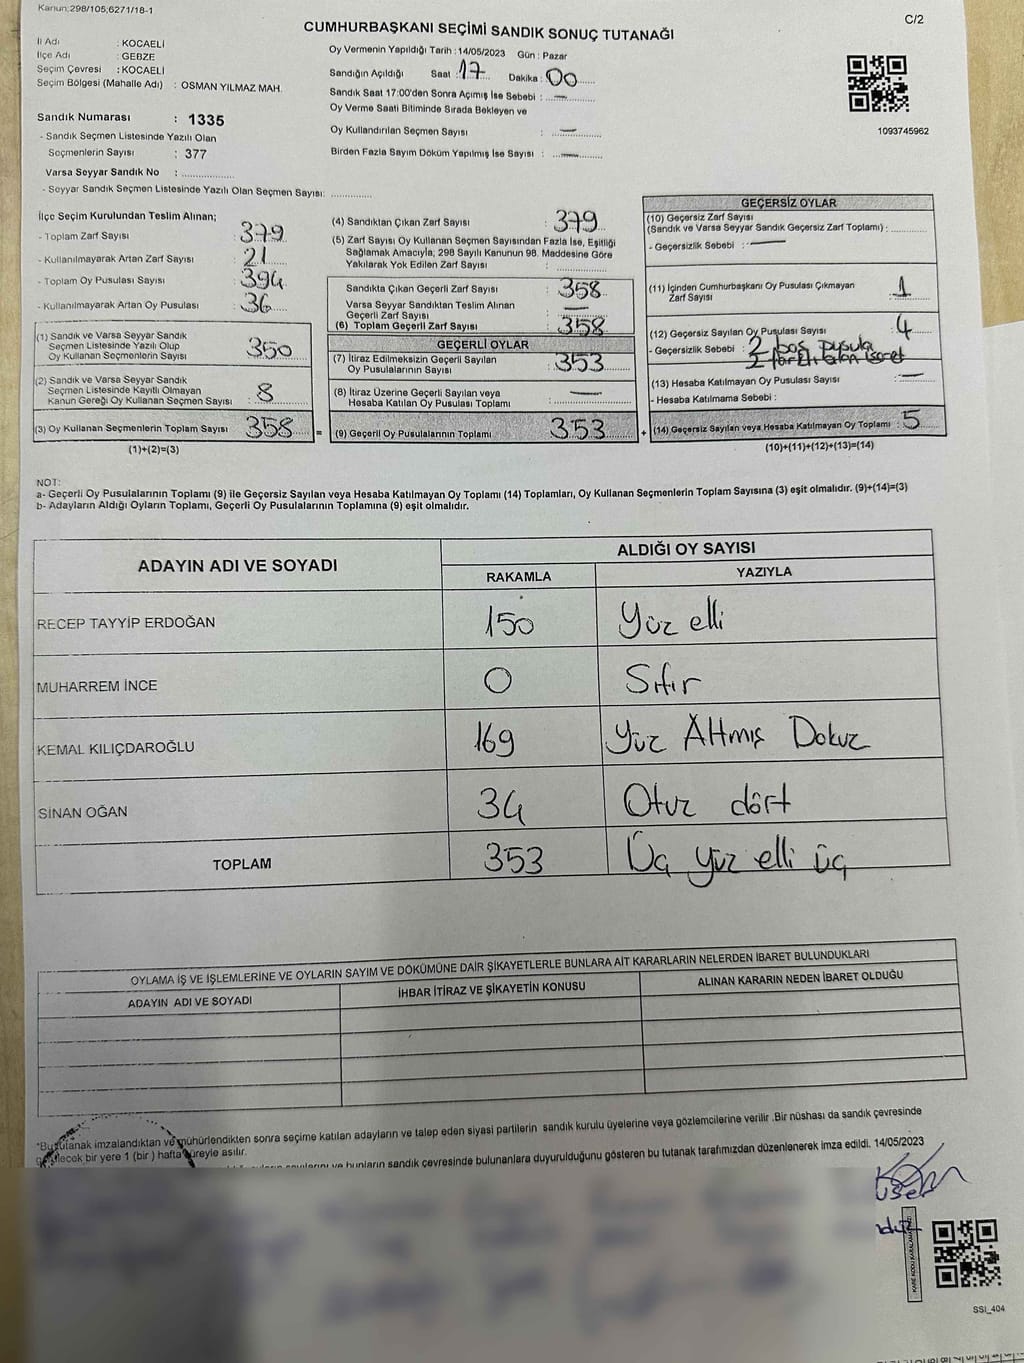 Kanun:298/105;6271/18-1
C/2
CUMHURBAŞKANI SEÇİMİ SANDIK SONUÇ TUTANAĞI
İl Adı : KOCAELİ
İlçe Adı : GEBZE
Seçim Çevresi : KOCAELİ
Seçim Bölgesi (Mahalle Adı) : OSMAN YILMAZ MAH.
Oy Vermenin Yapıldığı Tarih : 14/05/2023 Gün : Pazar
Sandığın Açıldığı Saat : 17 Dakika : 00
Sandık Saat 17:00'den Sonra Açımış İse Sebebi : —
Oy Verme Saati Bitiminde Sırada Bekleyen ve
Oy Kullandırılan Seçmen Sayısı : —
Birden Fazla Sayım Döküm Yapılmış İse Sayısı : —
1093745962
Sandık Numarası : 1335
- Sandık Seçmen Listesinde Yazılı Olan
Seçmenlerin Sayısı : 377
Varsa Seyyar Sandık No :
- Seyyar Sandık Seçmen Listesinde Yazılı Olan Seçmen Sayısı:
İlçe Seçim Kurulundan Teslim Alınan;
- Toplam Zarf Sayısı : 379
- Kullanılmayarak Artan Zarf Sayısı : 21
- Toplam Oy Pusulası Sayısı : 394
- Kullanılmayarak Artan Oy Pusulası : 36
(1) Sandık ve Varsa Seyyar Sandık
Seçmen Listesinde Yazılı Olup
Oy Kullanan Seçmenlerin Sayısı : 350
(2) Sandık ve Varsa Seyyar Sandık
Seçmen Listesinde Kayıtlı Olmayan
Kanun Gereği Oy Kullanan Seçmen Sayısı : 8
(3) Oy Kullanan Seçmenlerin Toplam Sayısı : 358 =
(1)+(2)=(3)
(4) Sandıktan Çıkan Zarf Sayısı : 379
(5) Zarf Sayısı Oy Kullanan Seçmen Sayısından Fazla İse, Eşitliği
Sağlamak Amacıyla, 298 Sayılı Kanunun 98. Maddesine Göre
Yakılarak Yok Edilen Zarf Sayısı :
Sandıkta Çıkan Geçerli Zarf Sayısı : 358
Varsa Seyyar Sandıktan Teslim Alınan
Geçerli Zarf Sayısı : —
(6) Toplam Geçerli Zarf Sayısı : 358
GEÇERLİ OYLAR
(7) İtiraz Edilmeksizin Geçerli Sayılan
Oy Pusulalarının Sayısı : 353
(8) İtiraz Üzerine Geçerli Sayılan veya
Hesaba Katılan Oy Pusulası Toplamı : —
(9) Geçerli Oy Pusulalarının Toplamı : 353 +
GEÇERSİZ OYLAR
(10) Geçersiz Zarf Sayısı
(Sandık ve Varsa Seyyar Sandık Geçersiz Zarf Toplamı) :
- Geçersizlik Sebebi : —
(11) İçinden Cumhurbaşkanı Oy Pusulası Çıkmayan
Zarf Sayısı : 1
(12) Geçersiz Sayılan Oy Pusulası Sayısı : 4
- Geçersizlik Sebebi : 2 boş pusula
2 farklı alan işaret
(13) Hesaba Katılmayan Oy Pusulası Sayısı : —
- Hesaba Katılmama Sebebi :
(14) Geçersiz Sayılan veya Hesaba Katılmayan Oy Toplamı : 5
(10)+(11)+(12)+(13)=(14)
NOT:
a- Geçerli Oy Pusulalarının Toplamı (9) ile Geçersiz Sayılan veya Hesaba Katılmayan Oy Toplamı (14) Toplamları, Oy Kullanan Seçmenlerin Toplam Sayısına (3) eşit olmalıdır. (9)+(14)=(3)
b- Adayların Aldığı Oyların Toplamı, Geçerli Oy Pusulalarının Toplamına (9) eşit olmalıdır.
ADAYIN ADI VE SOYADI
ALDIĞI OY SAYISI
RAKAMLA YAZIYLA
RECEP TAYYİP ERDOĞAN 150 Yüz elli
MUHARREM İNCE 0 Sıfır
KEMAL KILIÇDAROĞLU 169 Yüz Altmış Dokuz
SİNAN OĞAN 34 Otuz dört
TOPLAM 353 Üç yüz elli üç
OYLAMA İŞ VE İŞLEMLERİNE VE OYLARIN SAYIM VE DÖKÜMÜNE DAİR ŞİKAYETLERLE BUNLARA AİT KARARLARIN NELERDEN İBARET BULUNDUKLARI
ADAYIN ADI VE SOYADI İHBAR İTİRAZ VE ŞİKAYETİN KONUSU ALINAN KARARIN NEDEN İBARET OLDUĞU
*Bu tutanak imzalandıktan ve mühürlendikten sonra seçime katılan adayların ve talep eden siyasi partilerin sandık kurulu üyelerine veya gözlemcilerine verilir .Bir nüshası da sandık çevresinde
bir yere 1 (bir ) hafta süreyle asılır.
ve bunların sandık çevresinde bulunanlara duyurulduğunu gösteren bu tutanak tarafımızdan düzenlenerek imza edildi. 14/05/2023
SSI_404